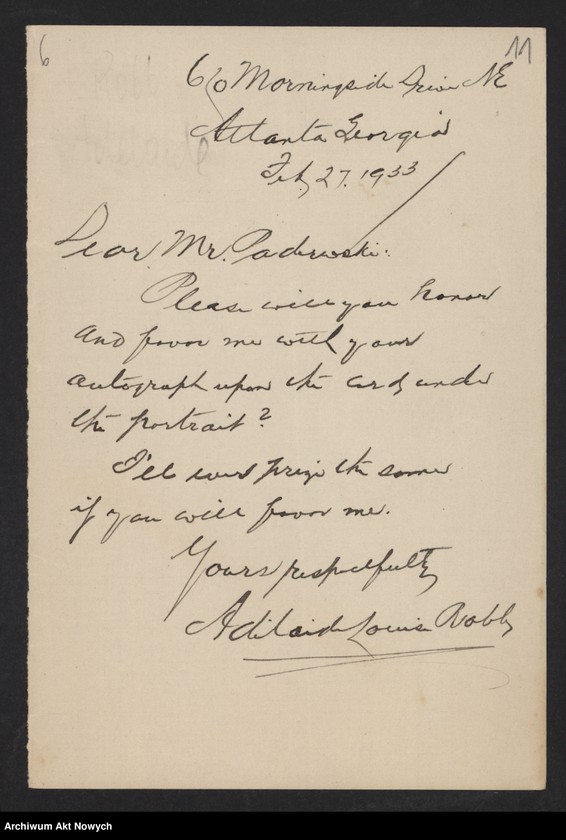 6
11
670 Morningside Drive NE
Atlanta Georgia
Feb, 27. 1933
Dear Mr. Paderwski:
Please will you honor
and favor me with your
autograph upon the card under
the portrait?
I'll ever prize the same
if you will favor me.
Yours respectfully
Adelaide Louise Robb
Archiwum Akt Nowych